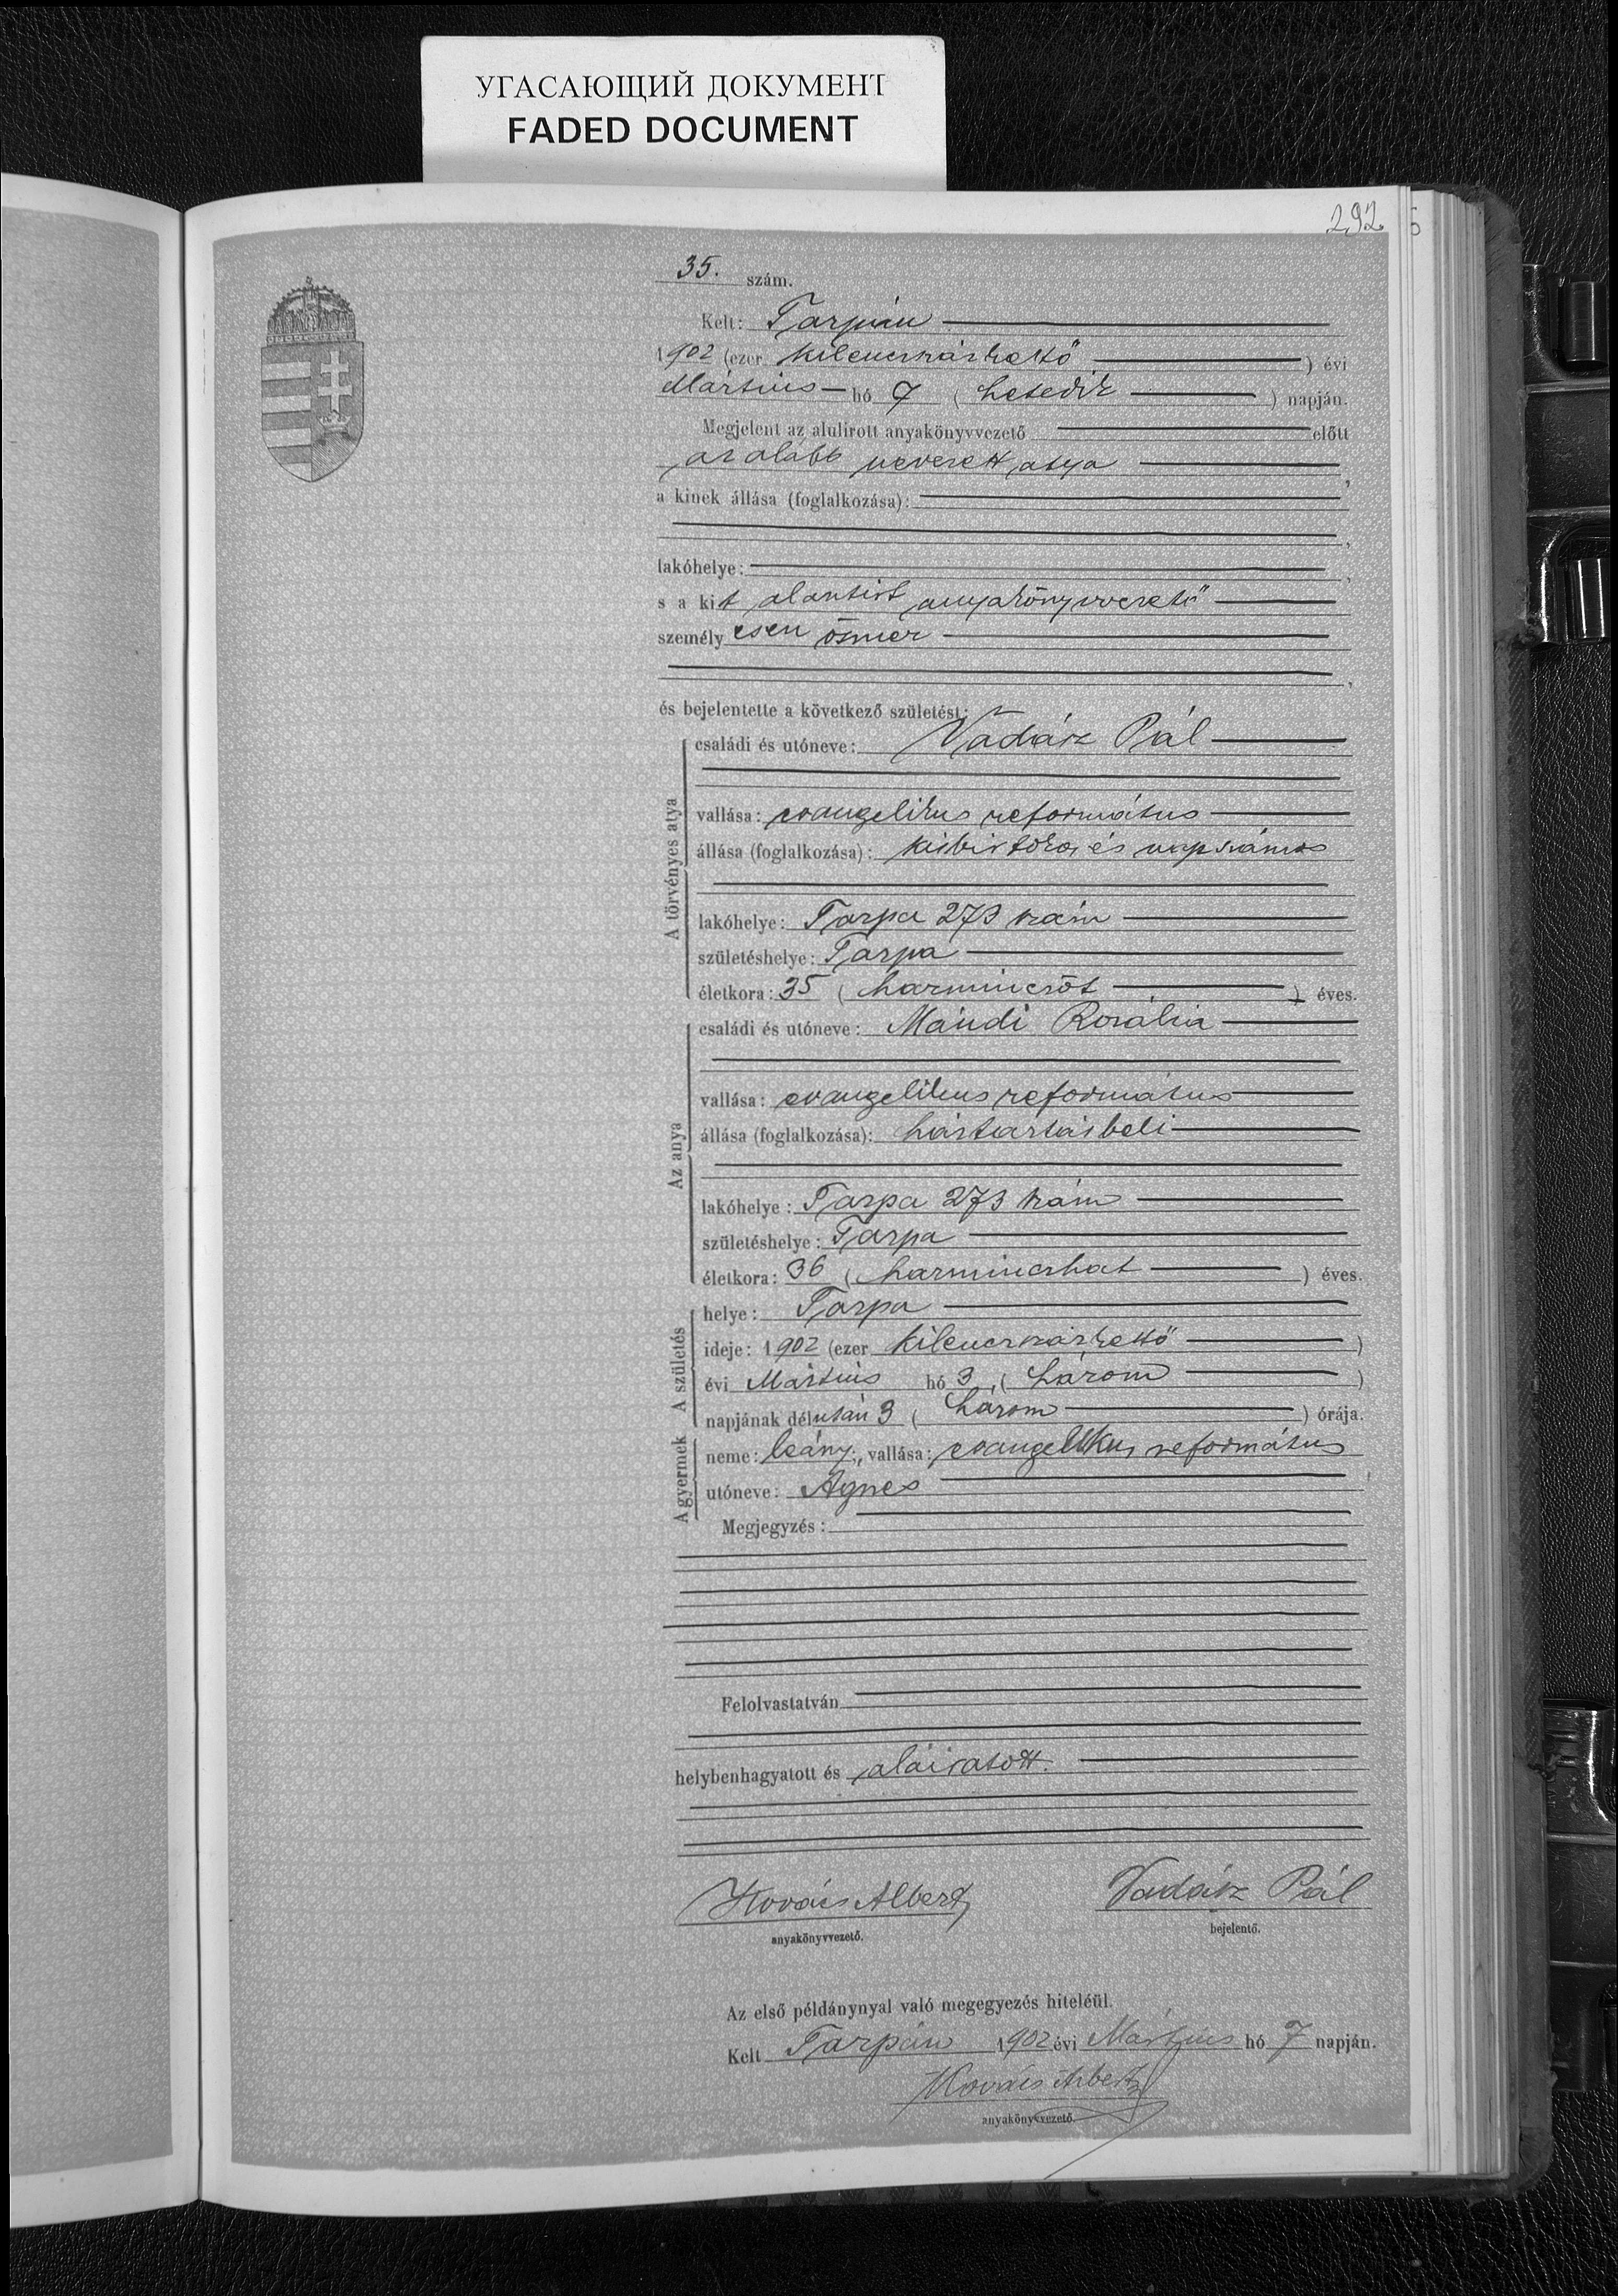 УГАСАЮЩИЙ ДОКУМЕНТ
FADED DOCUMENT
292
35. szám.
Kelt: Tarpán
1902 (ezer kilencszázkettő) évi
Martius hó 7 (hetedik) napján.
Megjelent az alulirott anyakönyvvezető előtt
az alább nevezett atya,
a kinek állása (foglalkozása):
lakóhelye:
s a kit alantirt anyakönyvvezető
személyesen ösmer
és bejelentette a következő születést:
A törvényes atya
családi és utóneve: Vadász Pál
vallása: evangelikus református
állása (foglalkozása): kisbirtokos és napszámos
lakóhelye: Tarpa 273 szám
születéshelye: Tarpa
életkora: 35 (harmincöt) éves.
Az anya
családi és utóneve: Mándi Rozália
vallása: evangelikus református
állása (foglalkozása): háztartásbeli
lakóhelye: Tarpa 273 szám
születéshelye: Tarpa
életkora: 36 (harminczhat) éves.
A születés
helye: Tarpa
ideje: 1902 (ezer kilencszázkettő)
évi Martius hó 3 (három)
napjának délután 3 (három) órája.
A gyermek
neme: leány; vallása: evangelikus református
utóneve: Ágnes
Megjegyzés:
Felolvastatván
helybenhagyatott és aláiratott.
Kovács Albert Vadász Pál
anyakönyvvezető. bejelentő.
Az első példánynyal való megegyezés hiteléül.
Kelt Tarpán 1902 évi Martius hó 7 napján.
Kovács Albert
anyakönyvvezető.